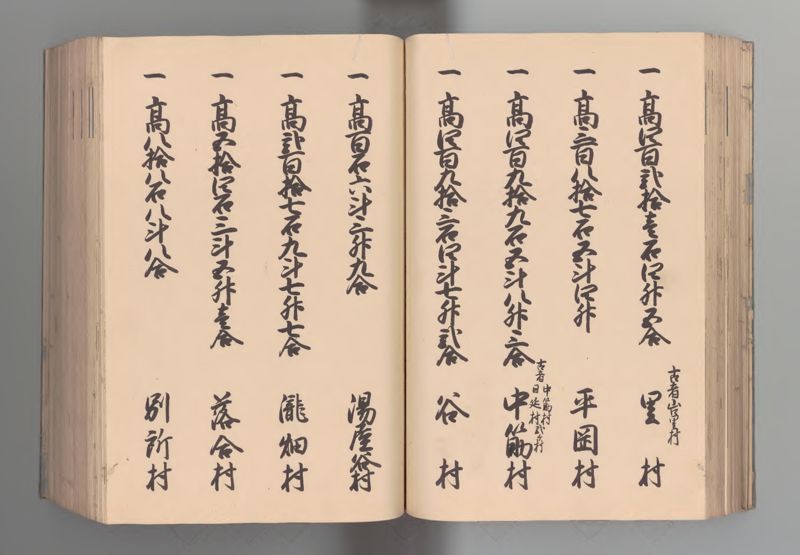 一 高四百弐拾壱石四升五合 里村
古者山口里村
一 高三百八拾七石五斗四升 平岡村
一 高四百九拾九石五斗八升三合 中筋村
古者 中筋村
日延村 弐ヶ村
一 高四百九拾三石四斗七升弐合 谷村
一 高百石六斗三升九合 湯屋谷村
一 高弐百拾七石九斗七升七合 瀧畑村
一 高五拾四石三斗五升壱合 落合村
一 高八拾八石八斗八合 別所村